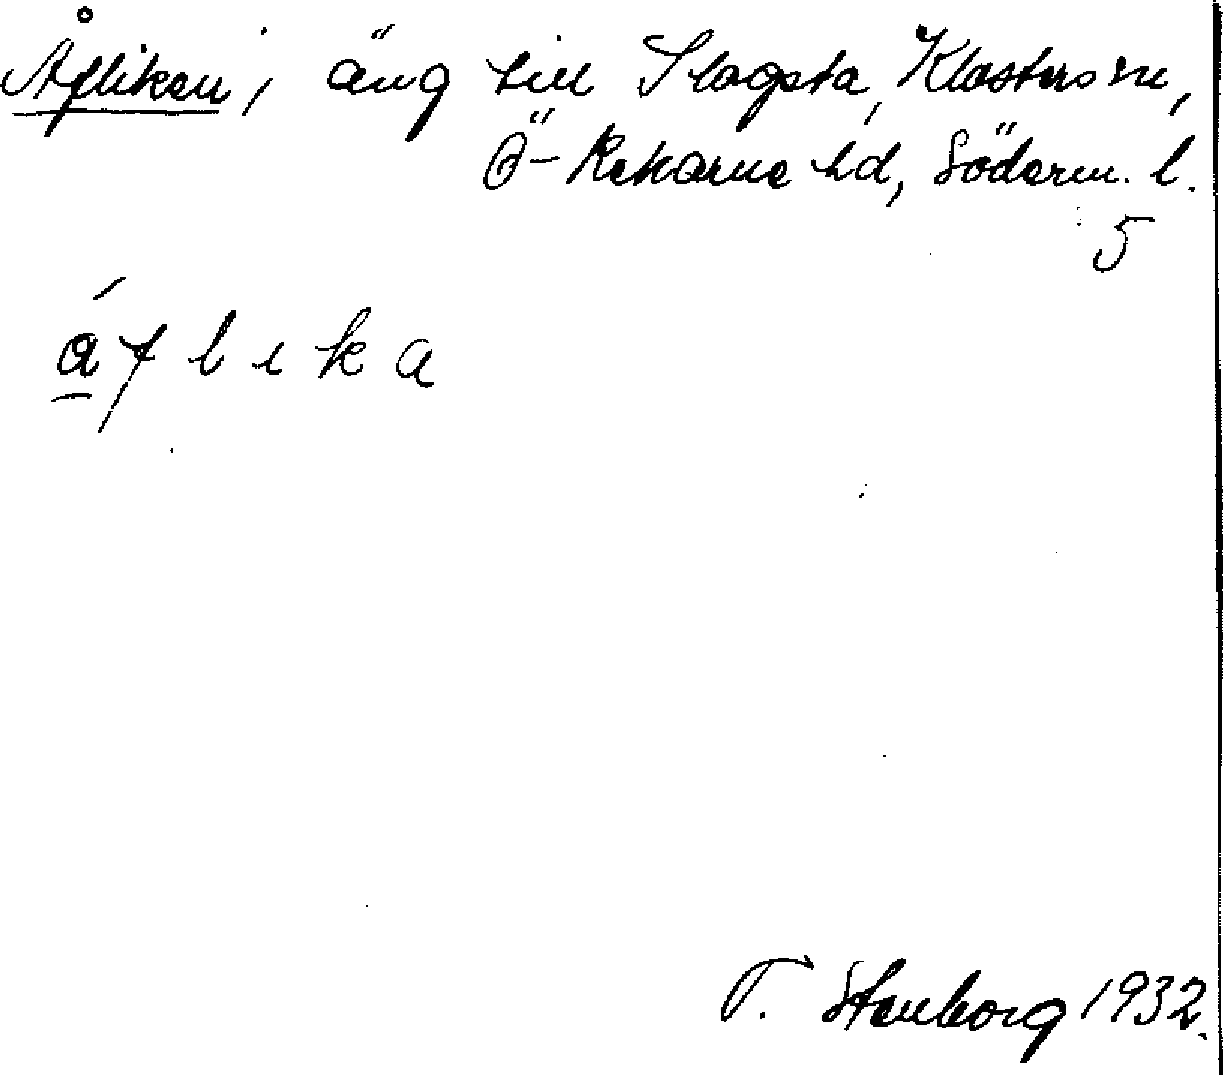 Åfliken, äng till Slagsta, Klosters sn,
Ö-Rekarne hd, Söderm. l.
5
áflıka
T. Stenborg 1932.